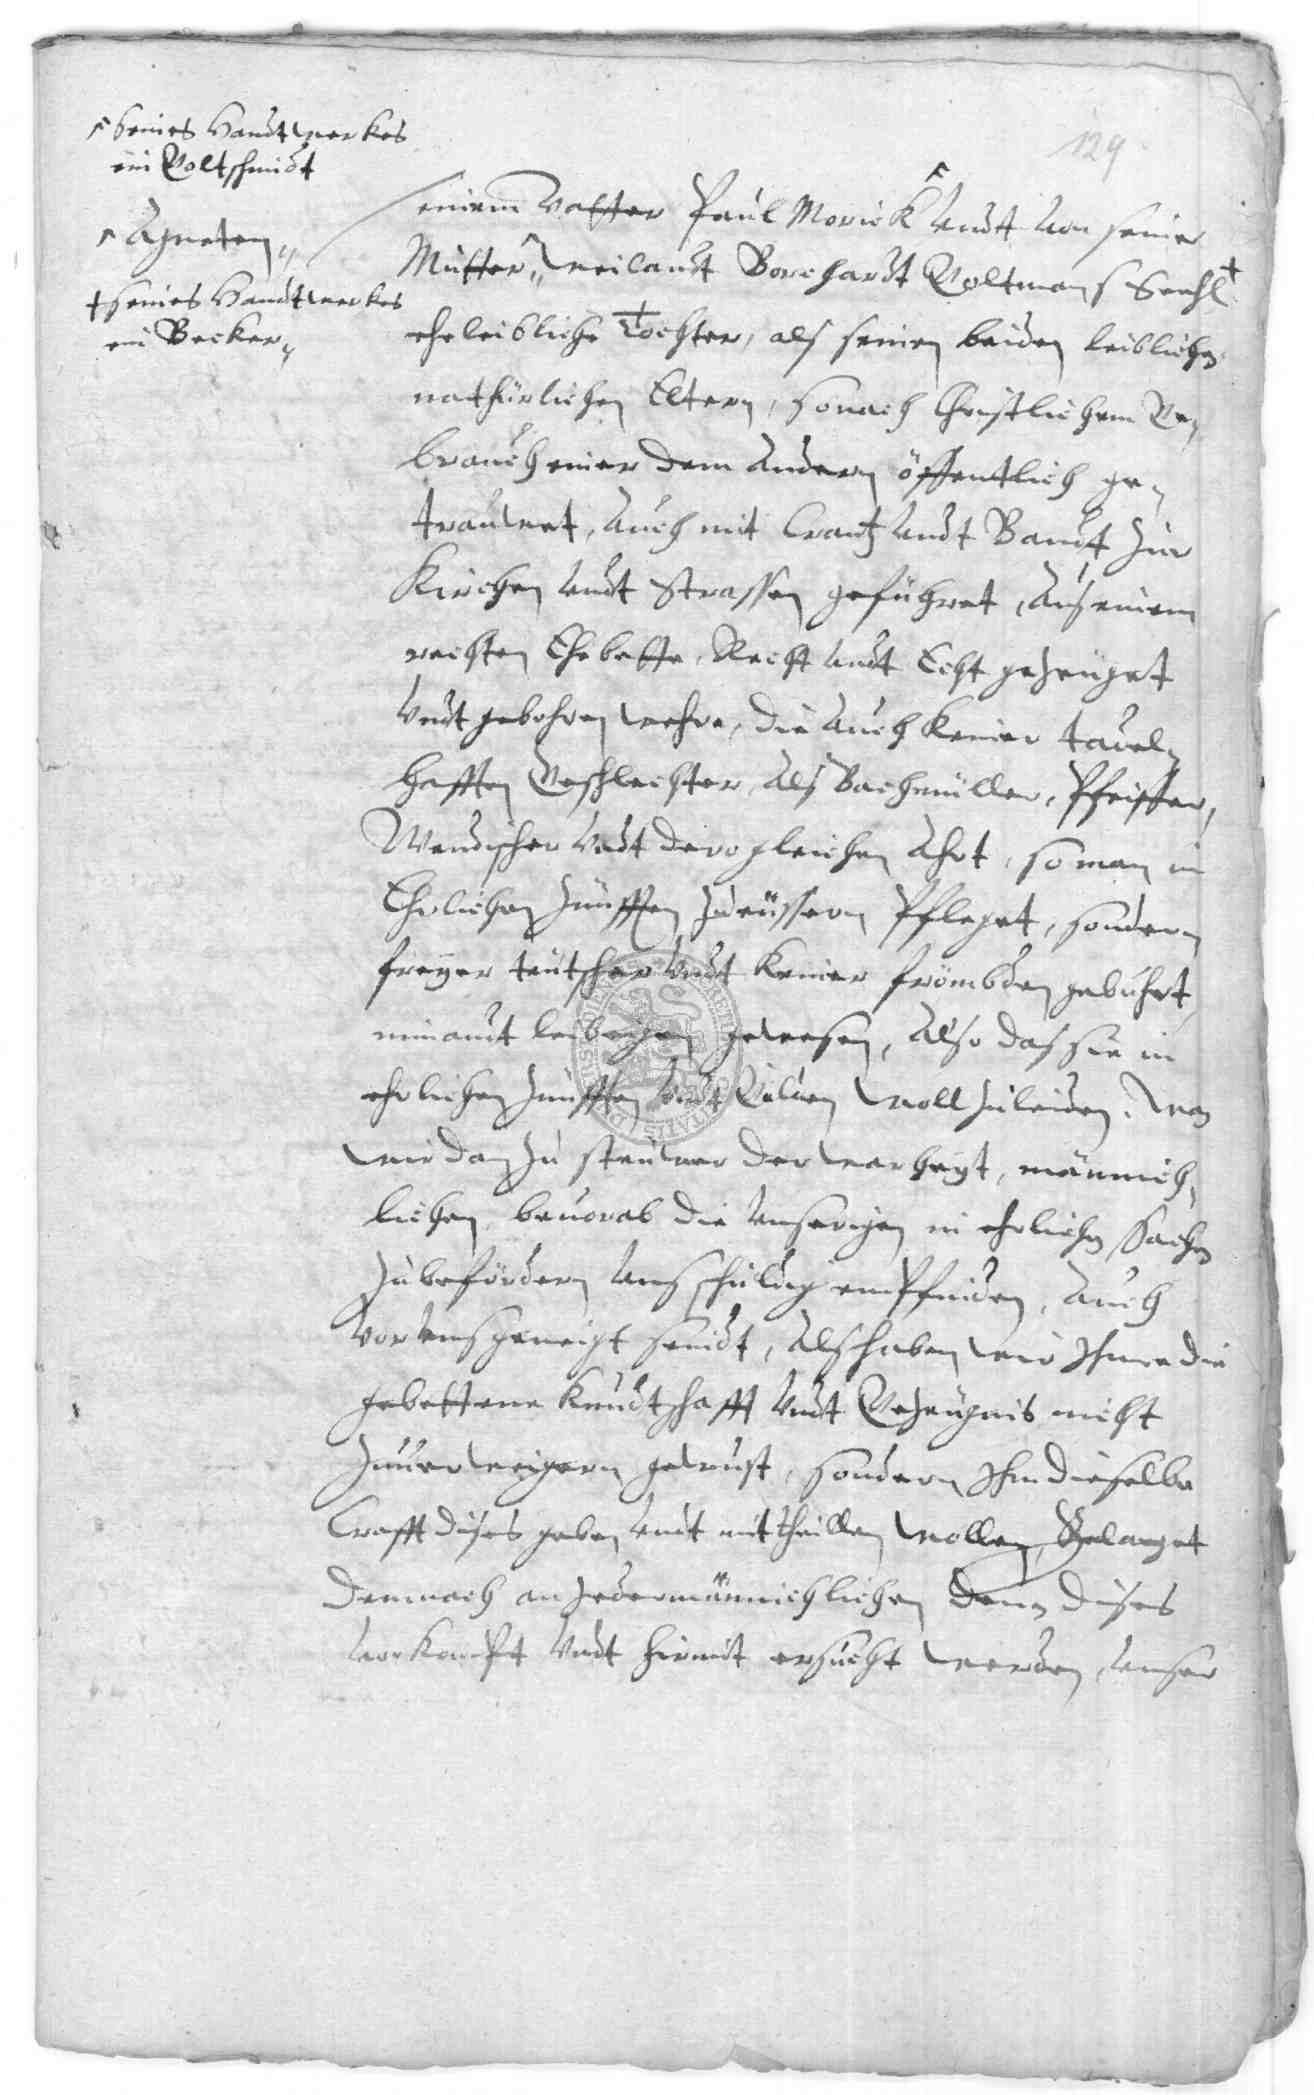 129
seines Handtwerkes
ein Goltschmidt
Agneten
† seines Handtwerkes
ein Becker
seinem Vatter Paul Morick Undt von seiner
Mutter, weilandt Borchardt Goltmans Seehl †
eheleibliche Tochter, als seinen beiden leiblichen
nathürlichen Eltern, so nach Christlichem Ge-
brauch einer dem Andern öffentlich ge-
trauwet, Auch mit Crantz Undt Bandt zur
Kirchen Undt Strassen geführet, Aus einem
rechten Ehebette, Recht Undt Echt gezeuget
Undt gebohren wehre, die Auch keiner tadel-
hafften Geschlechter, Als Bachmüller, Pfeiffer,
Wendischer Undt derogleichen Ahrt, so man in
Ehrlichen Zünfften zu eüssern Pfleget, sondern
freyer teutscher Undt keiner frömbden gebuhrt,
niemandt leibeigen gewesen, Also das sie in
ehrlichen Zünfften Undt Gilden woll zuleiden. Wan
wir dan zu steuwer der warheyt, männich-
lichen, bevorab die Unserigen in ehrlichen Sachen
zubefördern Uns schuldig empfinden, Auch
vor Uns geneigt seindt, Als haben wir Ihme die
gebettene Kundtschafft Undt Gezeugnis nicht
zuverweigern gewust, sondern Ihm dieselbe
Crafft dises geben Undt mittheillen wollen, Gelanget
demnach an Jedermänniglichen denen dises
vorkompt Undt hirmit ersucht werden, Unser